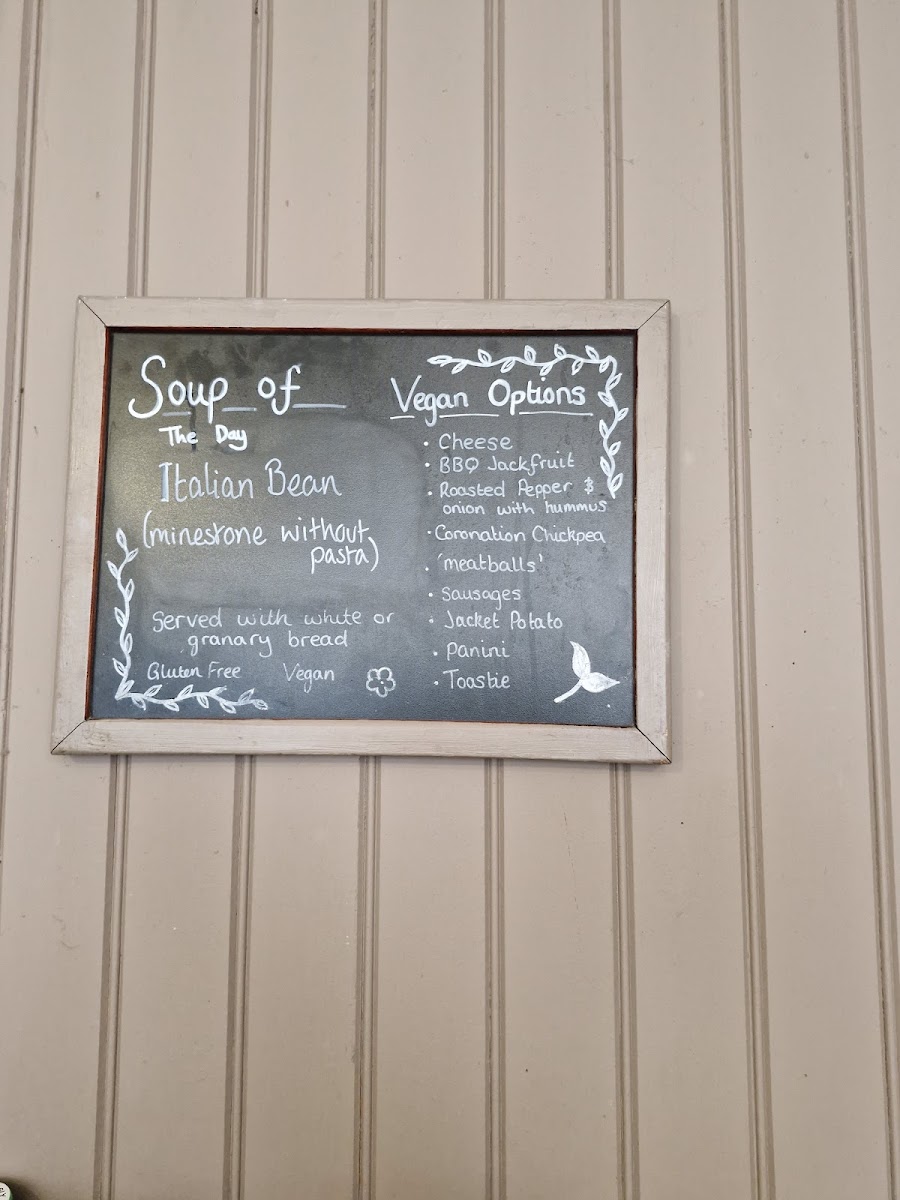 Soup of
The Day
Italian Bean
(minestrone without
pasta)
Served with white or
granary bread
Gluten Free Vegan
Vegan Options
• Cheese
• BBQ Jackfruit
• Roasted Pepper &
onion with hummus
• Coronation Chickpea
• 'meatballs'
• Sausages
• Jacket Potato
• Panini
• Toastie